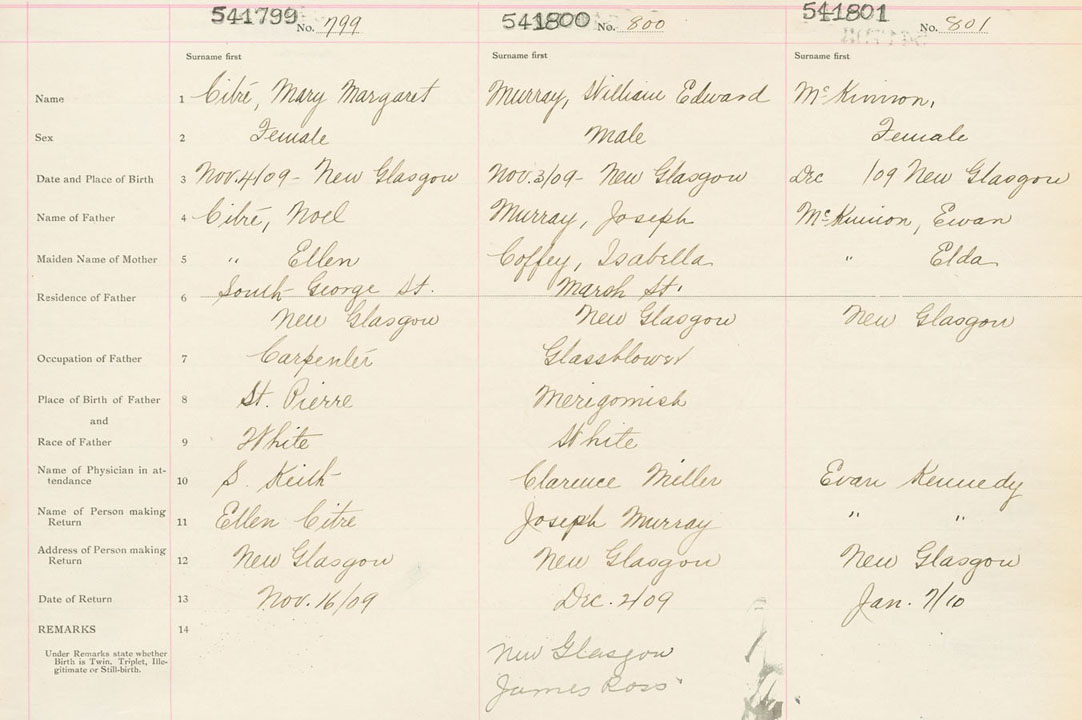 541799 No. 799 541800 No. 800 541801 No. 801
Surname first Surname first Surname first
Name 1 Citré, Mary Margaret Murray, William Edward McKinnon,
Sex 2 Female Male Female
Date and Place of Birth 3 Nov. 4/09 - New Glasgow Nov. 3/09 - New Glasgow Dec /09 New Glasgow
Name of Father 4 Citré, Noel Murray, Joseph McKinnon, Ewan
Maiden Name of Mother 5 " Ellen Coffey, Isabella " Elda
Residence of Father 6 South George St. Marsh St.
New Glasgow New Glasgow New Glasgow
Occupation of Father 7 Carpenter Glassblower
Place of Birth of Father 8 St. Pierre Merigomish
and
Race of Father 9 White White
Name of Physician in at-
tendance 10 S. Keith Clarence Miller Evan Kennedy
Name of Person making
Return 11 Ellen Citre Joseph Murray " "
Address of Person making
Return 12 New Glasgow New Glasgow New Glasgow
Date of Return 13 Nov. 16/09 Dec. 2/09 Jan. 7/10
REMARKS 14
Under Remarks state whether
Birth is Twin, Triplet, Ille-
gitimate or Still-birth.
New Glasgow
James Ross